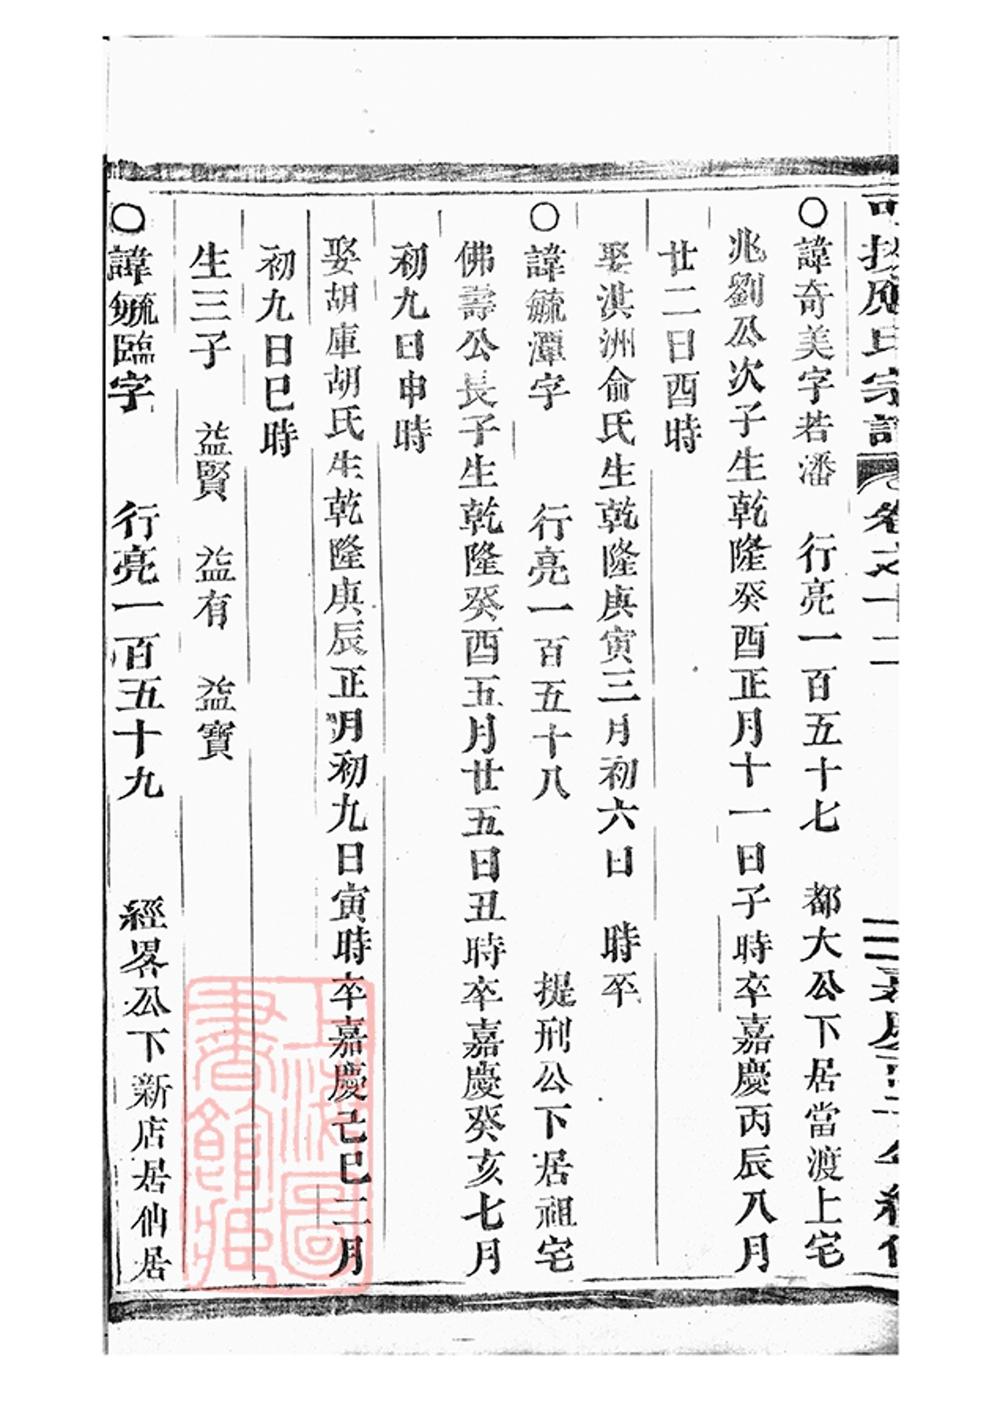 應氏宗譜 卷之十二
〇諱奇美字若潘 行亮一百五十七 都大公下居當渡上宅
兆劉公次子生乾隆癸酉正月十一日子時卒嘉慶丙辰八月
廿二日酉時
娶淇洲俞氏生乾隆庚寅三月初六日 時卒
〇諱毓潭字 行亮一百五十八 提刑公下居祖宅
佛壽公長子生乾隆癸酉五月廿五日丑時卒嘉慶癸亥七月
初九日申時
娶胡庫胡氏生乾隆庚辰正月初九日寅時卒嘉慶己巳二月
初九日巳時
生三子 益賢 益有 益寶
〇諱毓臨字 行亮一百五十九 經畧公下新店居仙居
上海圖書館藏